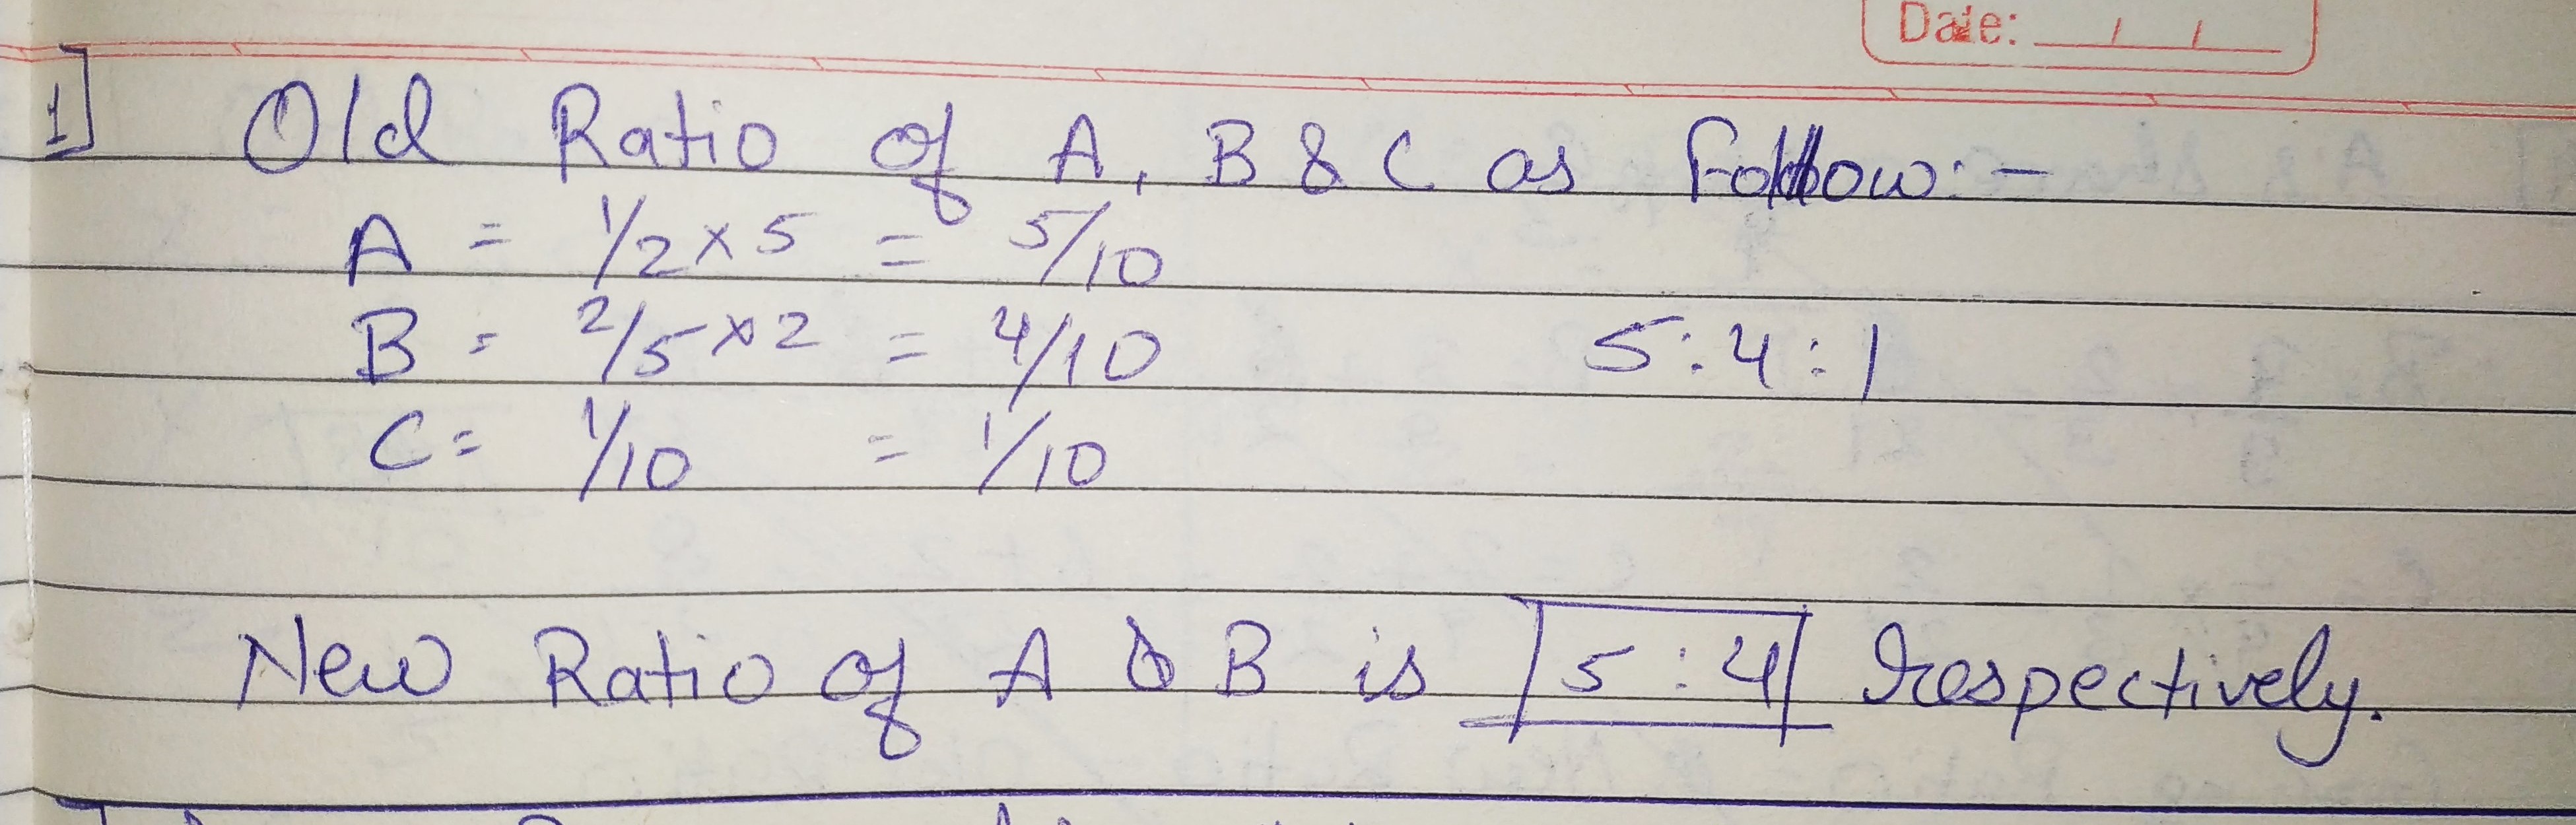 Date: / /
1] Old Ratio of A, B & C as Follow:-
A = 1/2 x 5 = 5/10
B = 2/5 x 2 = 4/10 5:4:1
C = 1/10 = 1/10
New Ratio of A & B is 5:4 respectively.